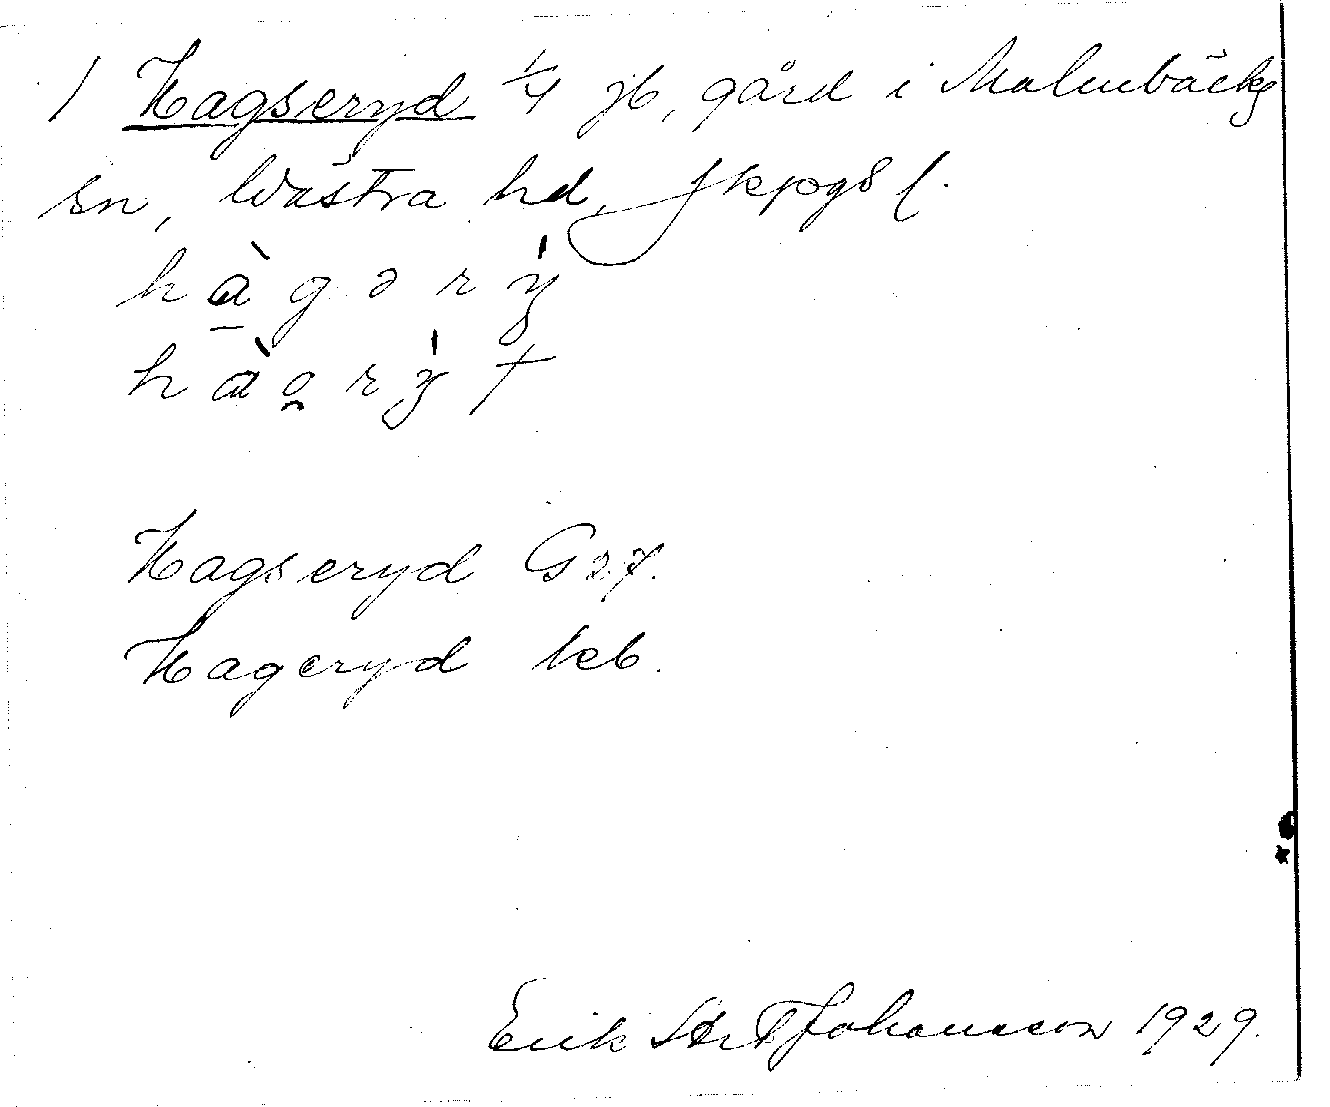 1 Hagseryd 1/4 jb, gård i Malmbäcks
sn, Västra hd, Jkpgs l.
hàgərý
hàgrýt
Hagseryd G 27.
Hageryd keb.
Erik Johansson 1929.